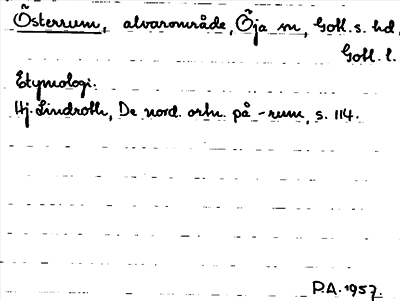 Österrum, alvarområde, Öja sn, Gotl. s. hd,
Gotl. l.
Etymologi.
Hj. Lindroth, De nord. ortn. på -rum, s. 114.
P.A. 1957.